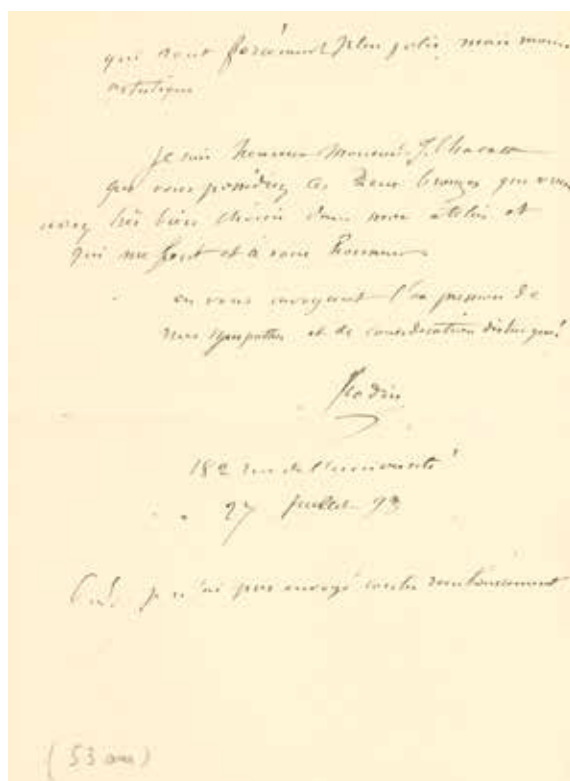 qui sont forcément plus jolis mais moins
artistique
je suis heureux Monsieur
que vous possédiez ces deux bronzes que vous
avez très bien choisis dans mon atelier et
qui me font et à vous honneur
en vous envoyant l'expression de
mes sympathies et de considération distinguée
Rodin
182 rue de l'université
27 juillet 93
P.S. je n'ai pas envoyé contre remboursement
(53 ans)